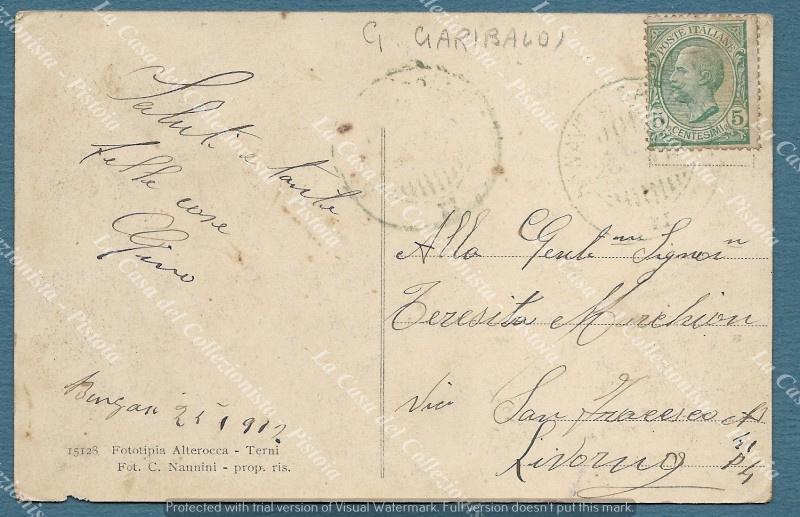 G. GARIBALDI
POSTE ITALIANE
5 5
CENTESIMI
Saluti e tante
belle cose
Gino
Alla Gent.ma Signori
Teresita
Via San Francesco
Livorno
Bengasi 25 1 912
15128 Fototipia Alterocca - Terni
Fot. C. Nannini - prop. ris.
La Casa del Collezionista - Pistoia
Protected with trial version of Visual Watermark. Full version doesn't put this mark.